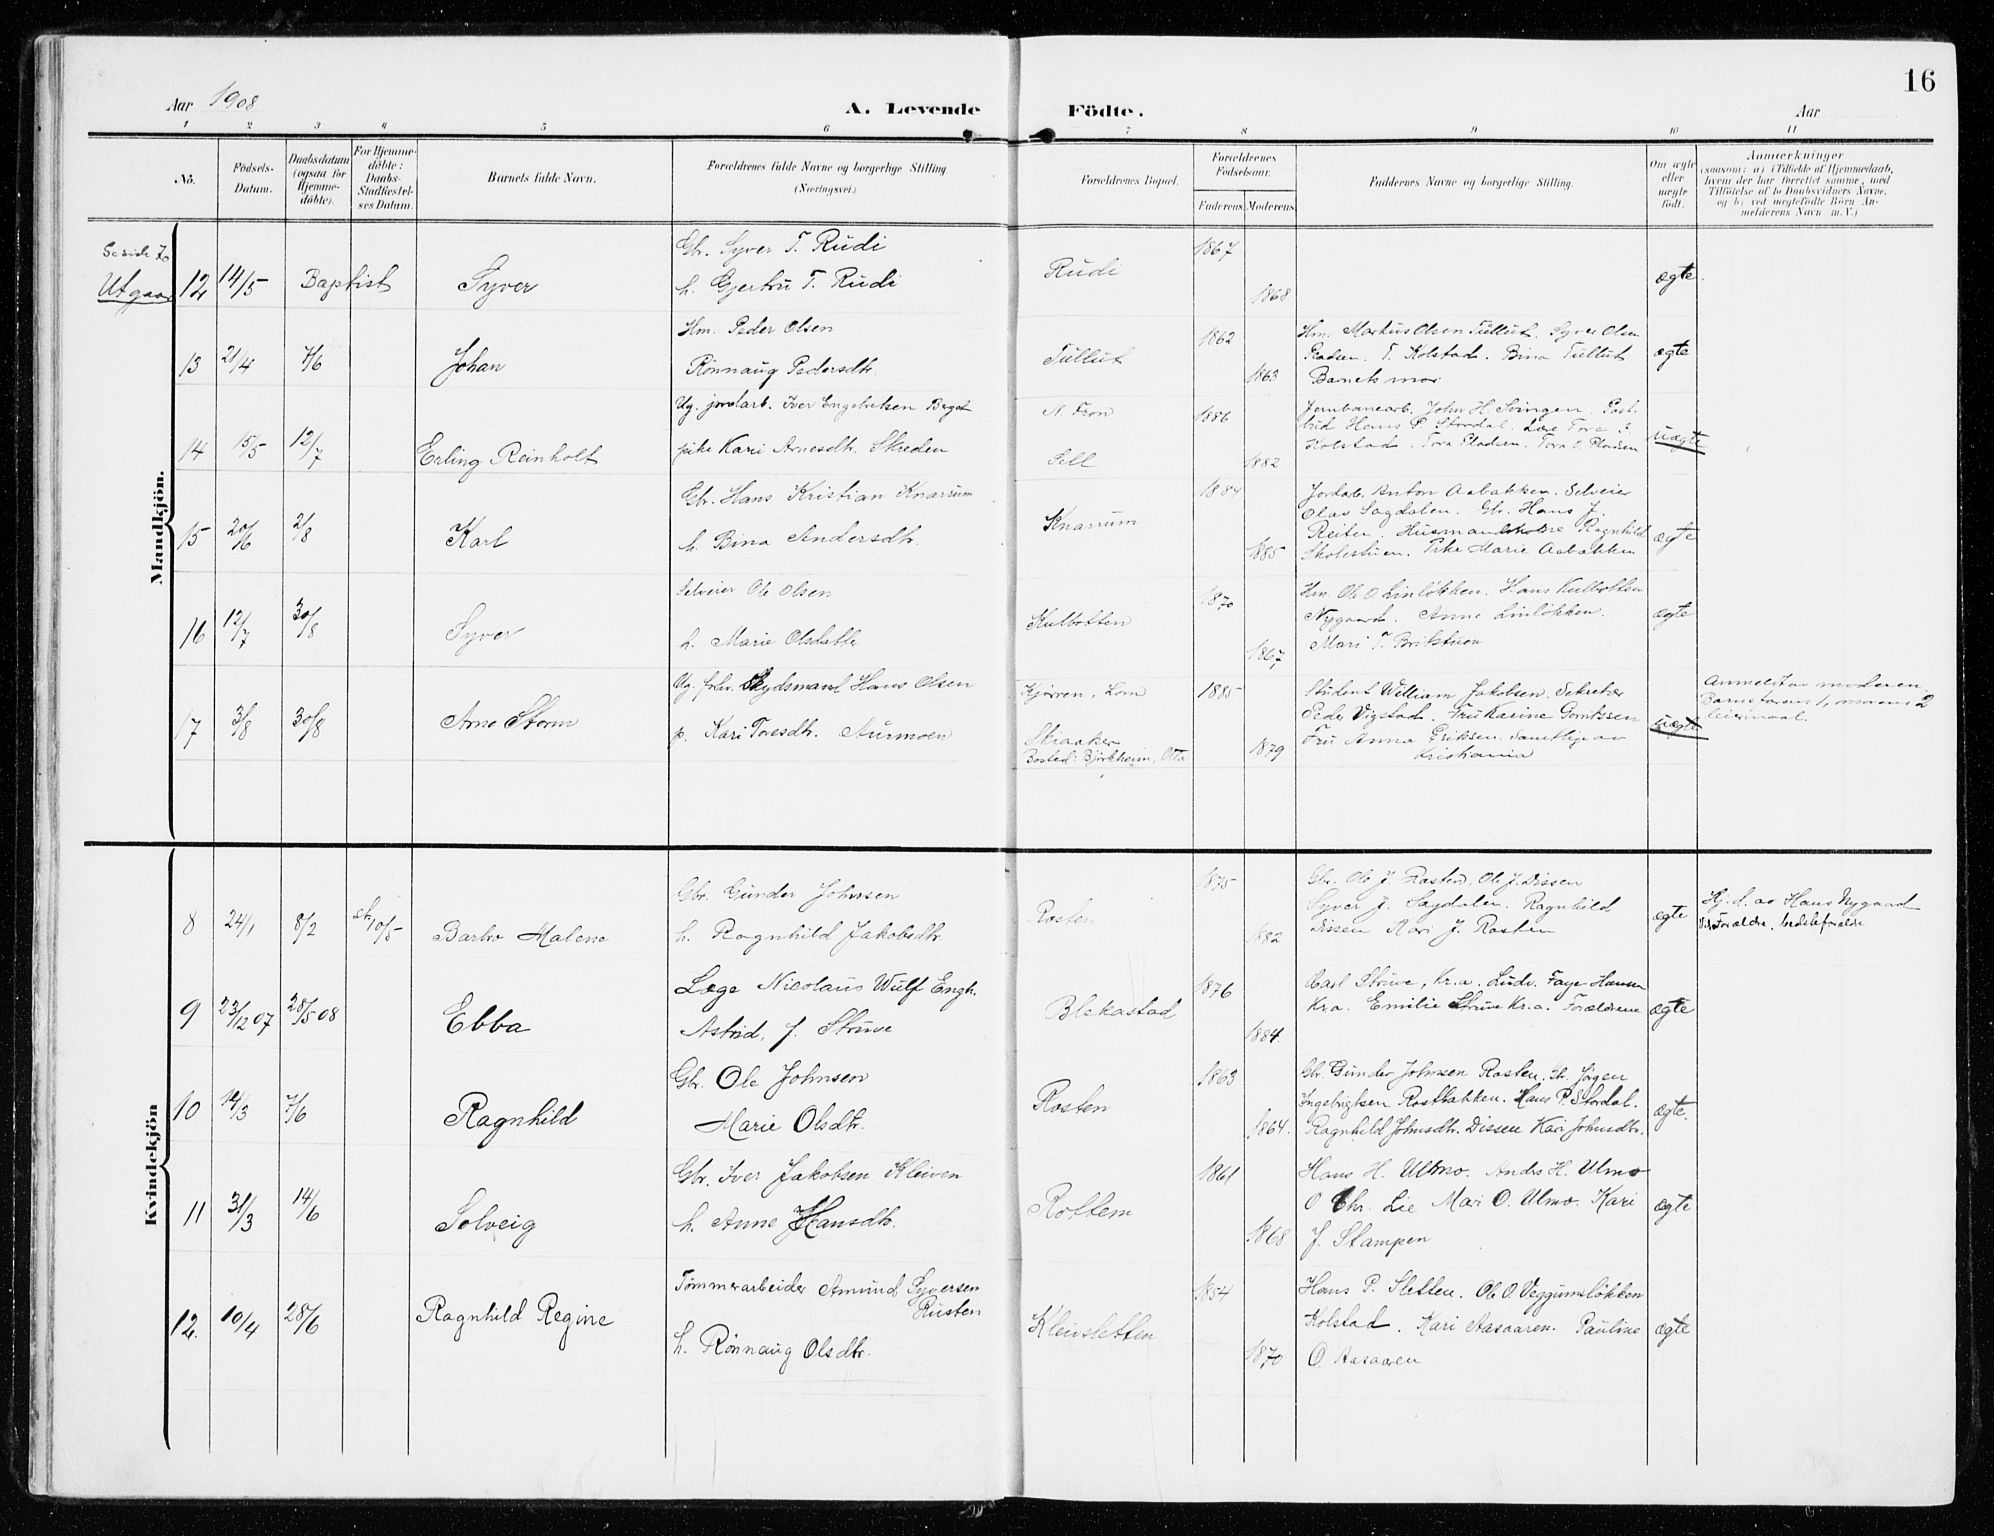 16
Aar 1908
A. Levende Födte.
Aar
1 2 3 4 5 6 7 8 9 10 11
No.
Födsels-Datum.
Daabsdatum (ogsaa for Hjemmedöbte).
For Hjemmedöbte: Daabs-Stadfæstelses Datum.
Barnets fulde Navn.
Forældrenes fulde Navne og borgerlige Stilling (Næringsvei.)
Forældrenes Bopæl.
Forældrenes Födselsaar.
Faderens. Moderens.
Faddernes Navne og borgerlige Stilling.
Om ægte eller uægte födt.
Anmærkninger
(saasom: a) i Tilfælde af Hjemmedaab, hvem der har forrettet samme, med Tilföielse af to Daabsvidners Navne, og b) ved uægtefödte Börn Anmelderens Navn m.V.)
Mandkjön.
Se side 70
Utgaar 12 14/5 Baptist Syver
Gbr. Syver T. Rudi
h. Gjertru T. Rudi
Rudi 1867 1868 ægte.
13 21/4 7/6 Johan
Hm. Peder Olsen
Rönnaug Pedersdtr.
Tullut 1862 1863
Hm. Markus Olsen Tullut. Syver Olsen
Pladsen. T. Kolstad. Bina Tullut
Barnets mor
ægte
14 15/5 12/7 Erling Reinholt
Ug. jordarb. Iver Engebretsen Berget
pike Kari Arnesdtr. Skreden
N. Fron 1886
Sell 1882
Jernbanearb. John H. Svingen. Post-
bud Hans P. Stordal.
Kolstad. Tora Pladsen. Tora S. Pladsen
uægte
15 20/6 2/8 Karl
Gbr. Hans Kristian Knarrum
h. Bina Andersdtr.
Knarrum 1884 1885
Jordarb. Anton Aabakken. Selveier
Olav Sagdalen. Gbr. Hans J.
Reiten. Husmand Ragnhild
Skolestuen. Pike Marie Aabakken
ægte
16 12/7 30/8 Syver
Selveier Ole Olsen
h. Marie Olsdatter
Kulbotten 1870 1867
Hm. Ole O. Linlökken. Hans Kulbotten
Nygaard. Anne Linlökken.
Mari T. Brikstuen
ægte
17 3/8 30/8 Arne Storm
Ug. forhv. Skydsmand Hans Olsen
p. Kari Toresdtr. Aurmoen
Kjörren, Lom 1885
Skiaaker
Bosted: Björkheim, Otta 1879
Student William Jakobsen. Sekretær
Peder Vigstad. Fru Karine Gorntssen
Fru Anna Eriksen. Samtlige av
Kristiania
uægte
Anmeldt av moderen.
Barnefarens 1, morens 2
leiermaal.
Kvindekjön
8 24/1 8/2 st. 10/5 Barbro Malene
Gbr. Gunder Johnsen
h. Ragnhild Jakobsdtr.
Rosten 1875 1882
Gbr. Ole J. Rosten, Ole J. Dissen
Syver J. Sagdalen. Ragnhild
Dissen Kari J. Rosten
ægte
Hj. d. av Hans Nygaard
Vid. Forældre, bedsteforældre
9 23/12 07 28/5 08 Ebba
Læge Nicolaus Wulf Engh.
Astrid, f. Struve
Blekastad 1876 1884.
Carl Struve, Kr.a. Ludv. Faye Hansen
Kr.a. Emilie Struve Kr.a. Forældrene
ægte
10 14/3 7/6 Ragnhild
Gbr. Ole Johnsen
Marie Olsdtr.
Rosten 1863 1864.
Gbr. Gunder Johnsen Rosten. Jörgen
Ingebrigtsen Rostbakken. Hans P. Stordal.
Ragnhild Johnsdtr. Dissen Kari Johnsdtr.
ægte.
11 31/3 14/6 Solveig
Gbr. Iver Jakobsen Kleiven
h. Anne Hansdtr.
Rottem 1861 1868
Hans H. Ulmo. Anders H. Ulmo
O Chr. Lie Mari O. Ulmo. Kari
J. Stampen
ægte
12. 10/4 28/6 Ragnhild Regine
Tømmerarbeider Amund Syversen
Rusten
h. Rönnaug Olsdtr.
Kleivsletten 1854 1870
Hans P. Sletten. Ole O. Veggumsløkken
Kolstad. Kari Aasaaren. Pauline
O. Aasaaren
ægte